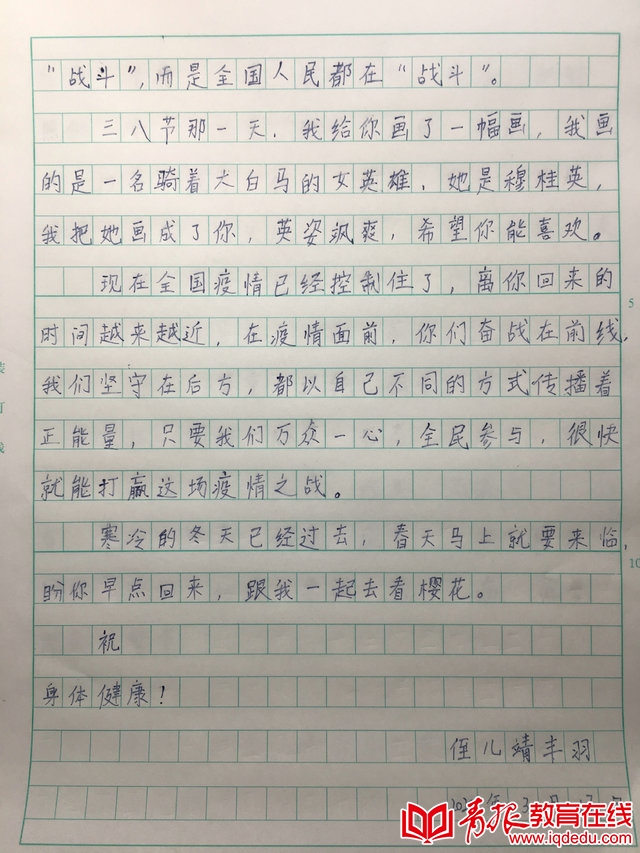 “战斗”,而是全国人民都在“战斗”。
三八节那一天,我给你画了一幅画,我画
的是一名骑着大白马的女英雄,她是穆桂英,
我把她画成了你,英姿飒爽,希望你能喜欢。
现在全国疫情已经控制住了,离你回来的
时间越来越近,在疫情面前,你们奋战在前线,
我们坚守在后方,都以自己不同的方式传播着
正能量,只要我们万众一心,全民参与,很快
就能打赢这场疫情之战。
寒冷的冬天已经过去,春天马上就要来临,
盼你早点回来,跟我一起去看樱花。
祝
身体健康!
侄儿靖丰羽
年3月
5
10
装
订
线
青报教育在线
www.iqdedu.com